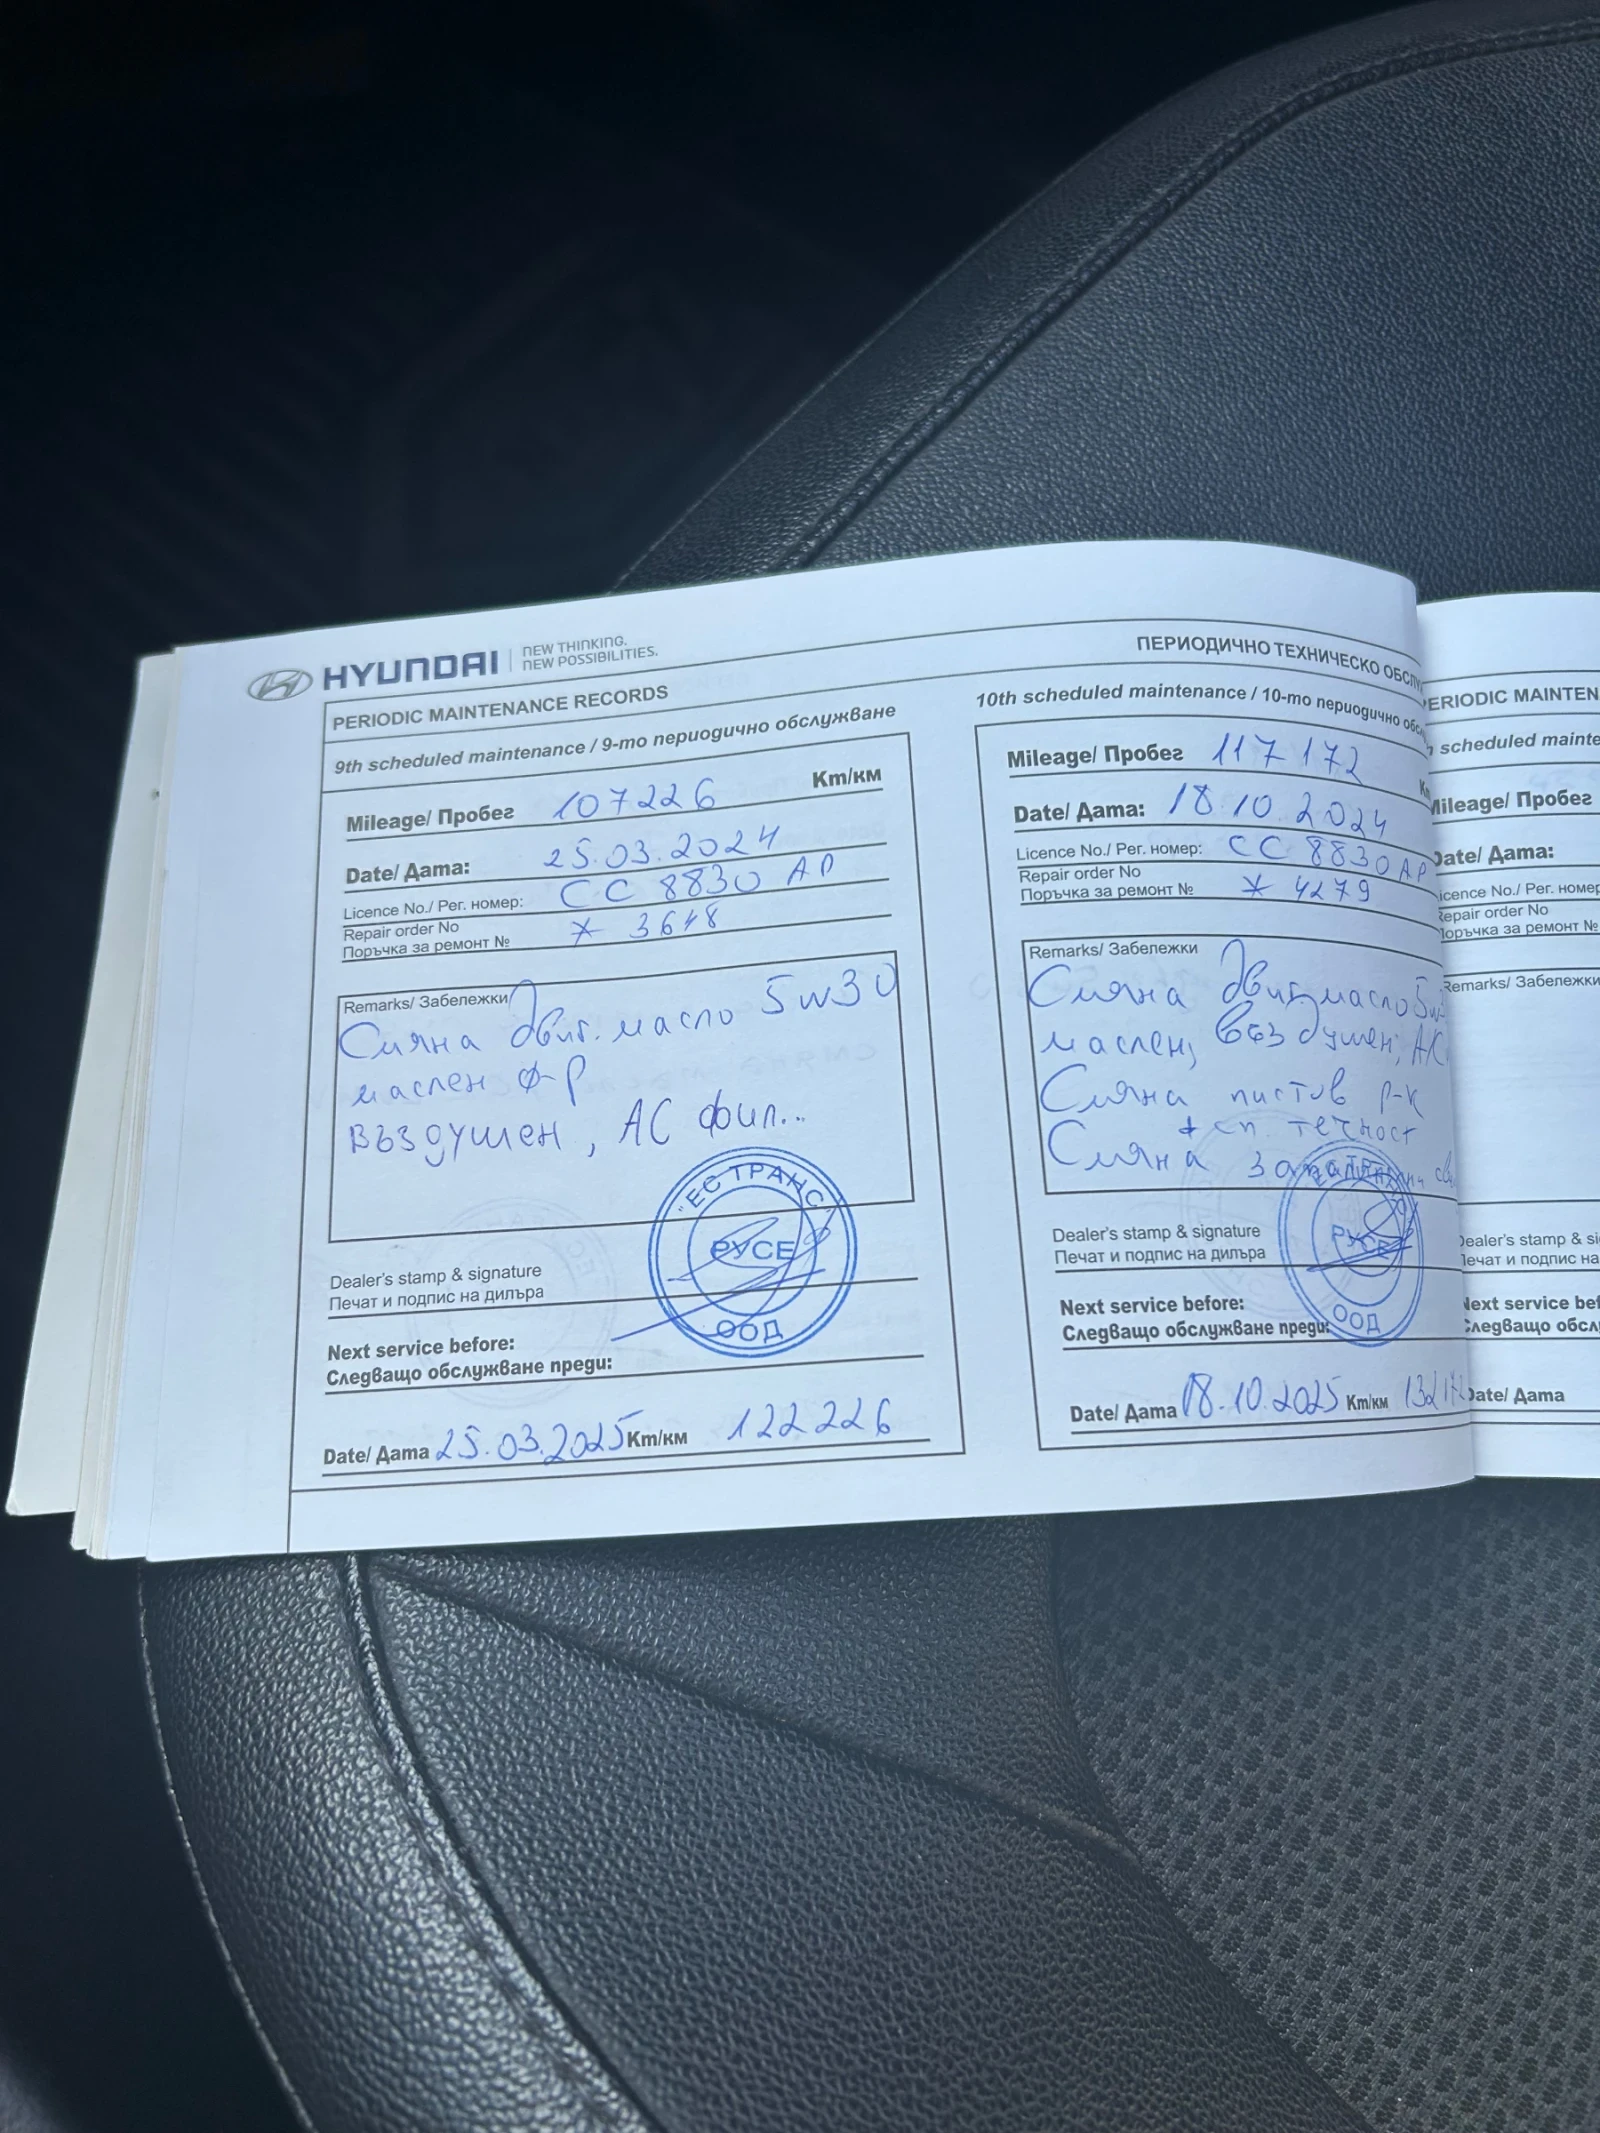 HYUNDAI
NEW THINKING.
NEW POSSIBILITIES.
PERIODIC MAINTENANCE RECORDS
9th scheduled maintenance / 9-то периодично обслужване
Mileage/ Пробег 107226 Km/км
Date/ Дата: 25.03.2024
Licence No./ Рег. номер: СС 8830 АР
Repair order No
Поръчка за ремонт № * 3648
Remarks/ Забележки
Смяна двиг. масло 5w30
маслен ф-р
въздушен, АС фил...
"ЕС ТРАНС"
РУСЕ
ООД
Dealer's stamp & signature
Печат и подпис на дилъра
Next service before:
Следващо обслужване преди:
Date/ Дата 25.03.2025 Km/км 122226
ПЕРИОДИЧНО ТЕХНИЧЕСКО ОБСЛУ
10th scheduled maintenance / 10-то периодично обс
Mileage/ Пробег 117172
Date/ Дата: 18.10.2024
Licence No./ Рег. номер: СС 8830 АР
Repair order No
Поръчка за ремонт № * 4279
Remarks/ Забележки
Смяна двиг. масло 5w
маслен, въздушен, АС
Смяна пистов р-к
+ сп. течност
Смяна
РУСЕ
ООД
Dealer's stamp & signature
Печат и подпис на дилъра
Next service before:
Следващо обслужване преди:
Date/ Дата 18.10.2025 Km/км 132172
ERIODIC MAINTEN
scheduled mainte
Mileage/ Пробег
Date/ Дата:
icence No./ Рег. номер
Repair order No
Поръчка за ремонт №
Remarks/ Забележки
Dealer's stamp & si
Печат и подпис на
Next service bef
Следващо обсл
Date/ Дата